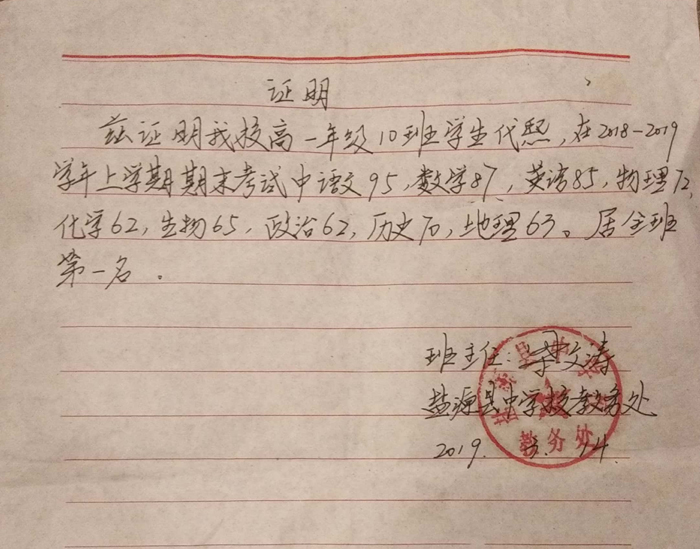 证明
兹证明我校高一年级10班学生代熙,在2018-2019
学年上学期期末考试中语文95,数学87,英语85,物理72,
化学62,生物65,政治62,历史70,地理63。居全班
第一名。
班主任:文涛
盐源县中学校教务处
2019. 3. 14.
教务处